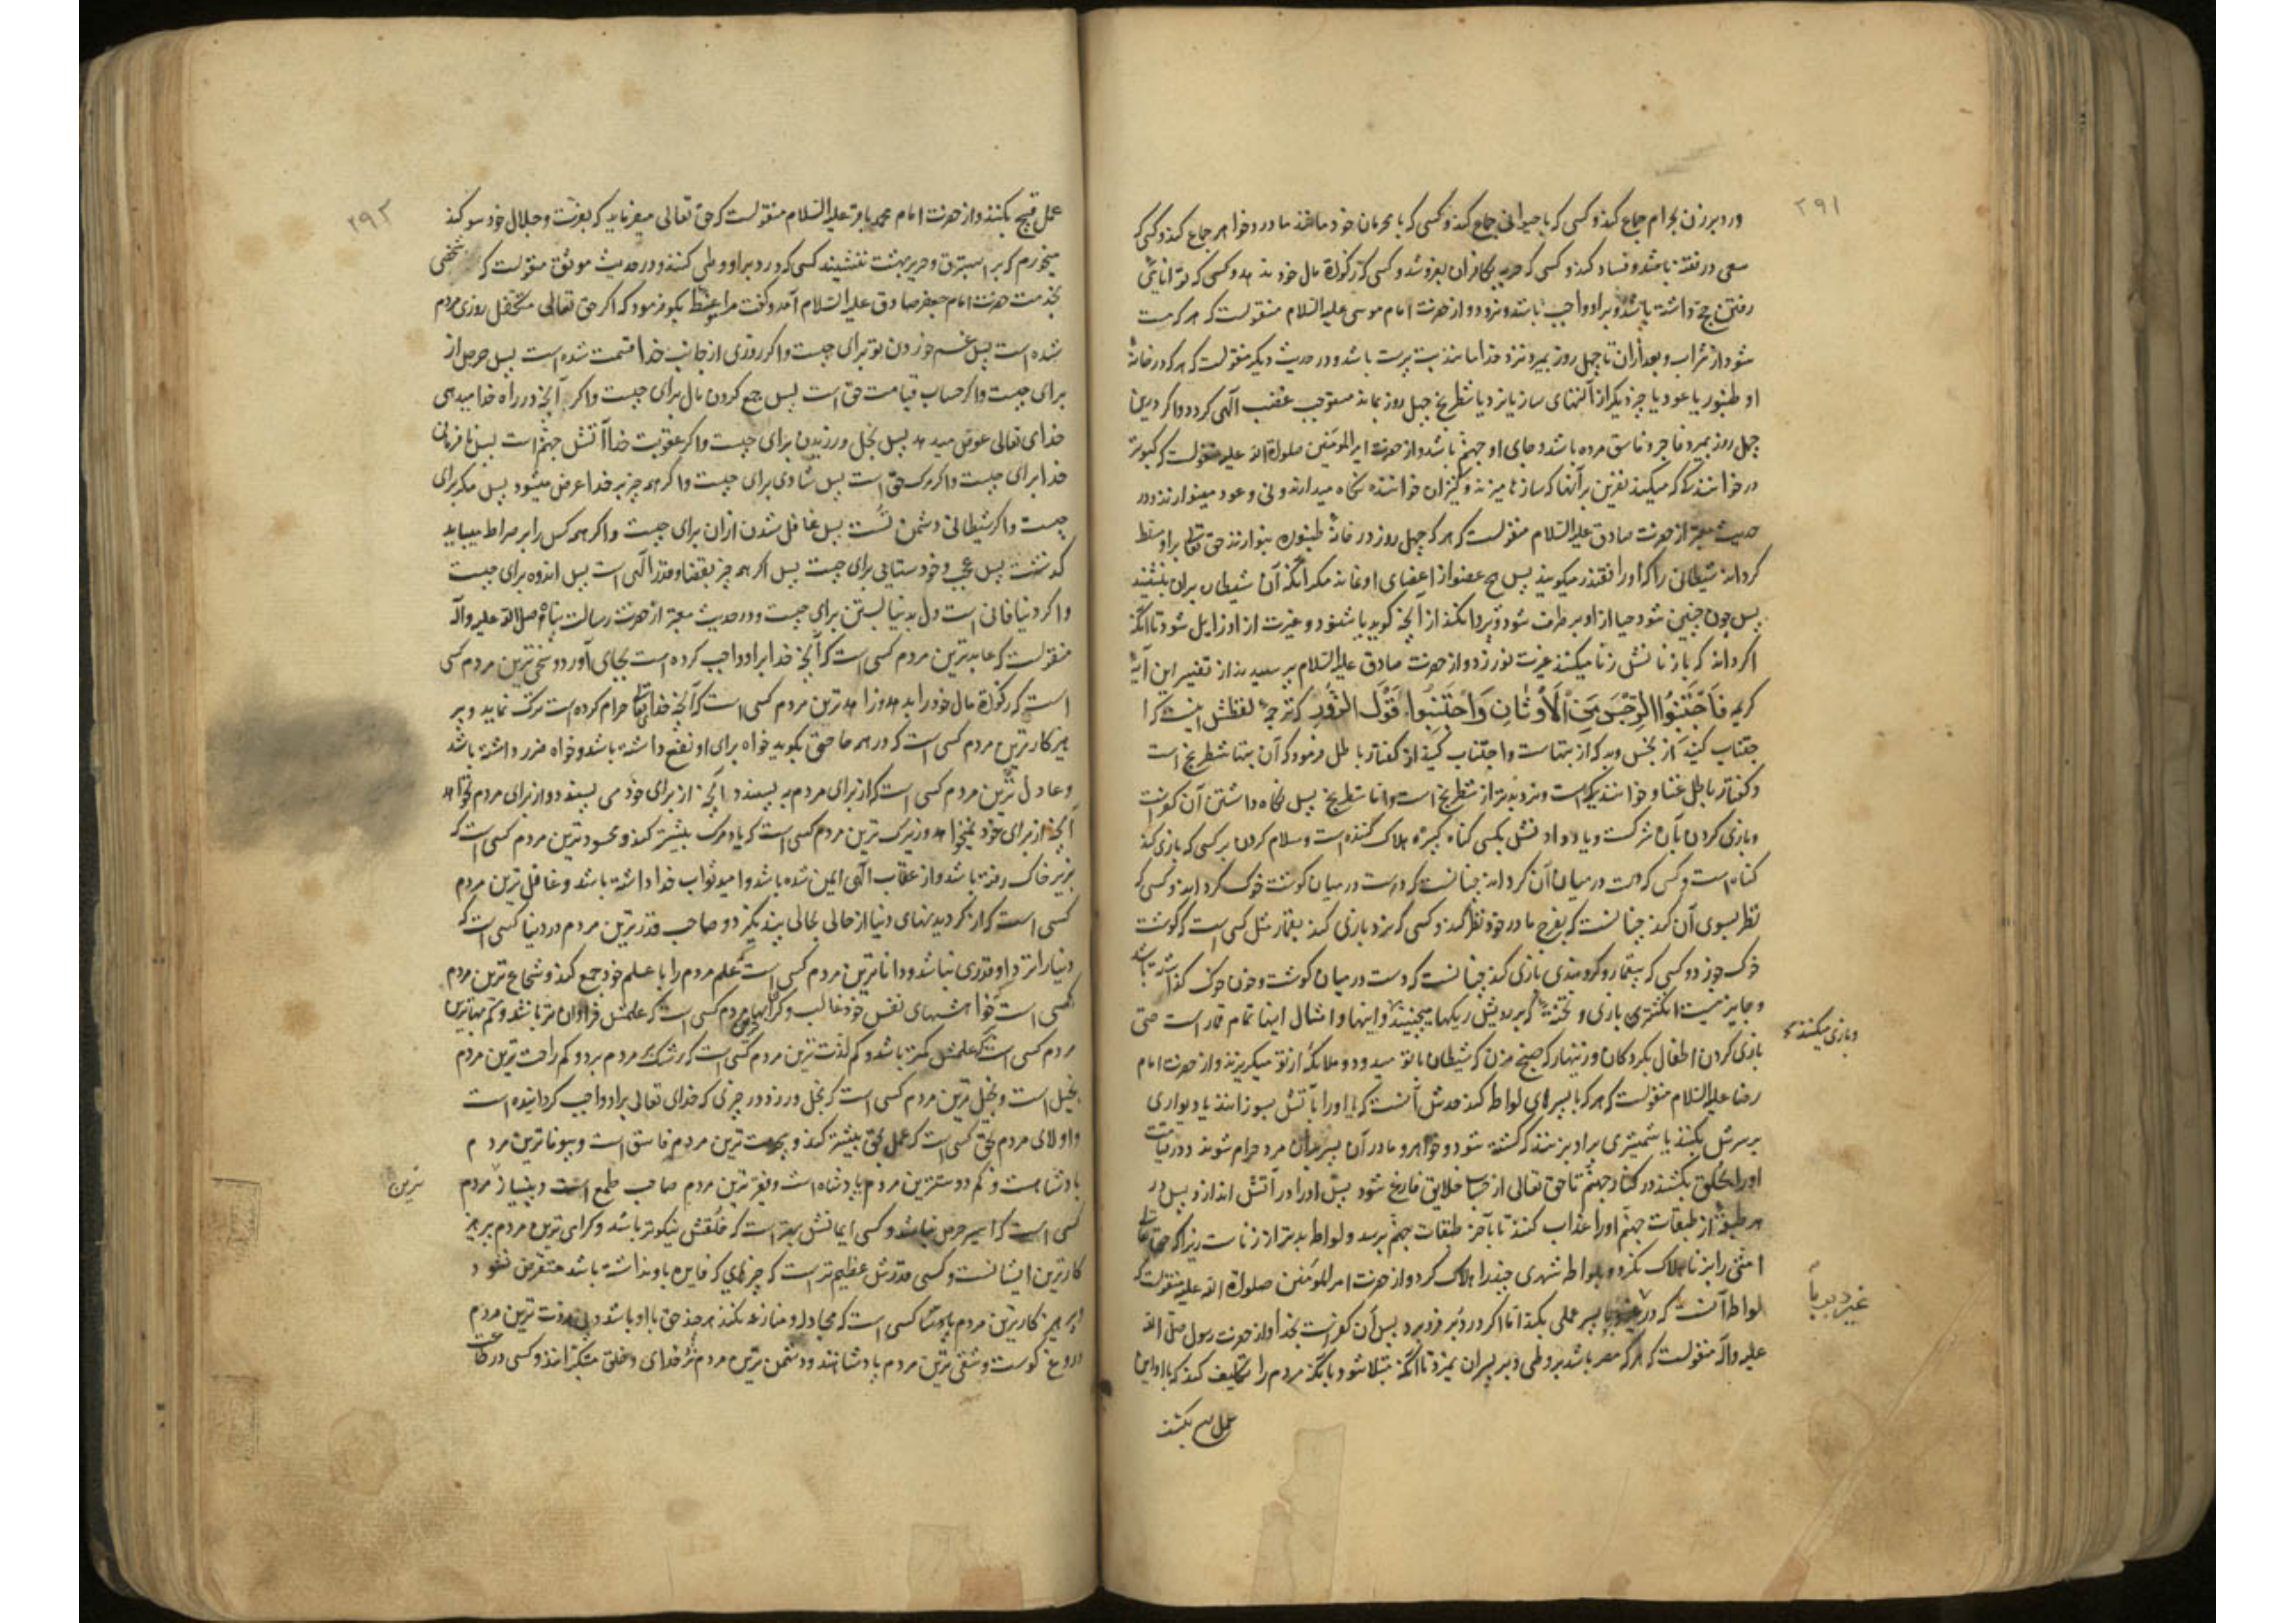 ۲۹۱
ودر دبر زن بحرام جماع کند و کسی که با حیوانی جماع کند و کسی که با محرمان خود مانند مادر و خواهر جماع کند و کسی که
سعی در فتنه باشد و فساد کند و کسی که حربه بکافران بفروشد و کسی که زکوة مال خود ندهد و کسی که توانایی
رفتن حج داشته باشد و بر او واجب باشد و نرود و از حضرت امام موسی علیه السلام منقولست که هر که مست
شود از شراب و بعد از ان تا چهل روز بمیرد نزد خدا مانند بت پرست باشد و در حدیث دیگر منقولست که هر که در خانهٔ
او طنبور یا عود یا چیز دیگر از آلتهای ساز یا نرد یا شطرنج چهل روز بماند مستوجب غضب الهی گردد و اگر در این
چهل روز بمیرد فاجر و فاسق مرده باشد و جای او جهنم باشد و از حضرت امیر المؤمنین صلوة الله علیه منقولست که کبوتر
در خوانندگی که میکند نفرین بر آنها که سازها میزنند و کنیزان خواننده نگاه میدارند و نی و عود مینوازند و در
حدیث معتبر از حضرت صادق علیه السلام منقولست که هر که چهل روز در خانهٔ طنبوره بنوازند حق تعالی بر او مسلط
گرداند شیطانی را که او را قفندر میگویند پس هیچ عضو از اعضای او نماند مگر آنکه آن شیطان بران بنشیند
پس چون چنین شود حیا از او بر طرف شود و پروا نکند از آنچه گوید یا شنود و غیرت از او زایل شود تا آنکه
اگر داند که با زنانش زنا میکنند غیرت نورزد و از حضرت صادق علیه السلام پرسیدند از تفسیر این آیهٔ
کریمه فَاجْتَنِبُوا الرِّجْسَ مِنَ الْأَوْثَانِ وَاجْتَنِبُوا قَوْلَ الزُّورِ که ترجمهٔ لفظش اینست که ا
جتناب کنید از نجس و بد که از بتهاست و اجتناب کنید از گفتار باطل فرمود که آن بتها شطرنج است
و گفتار باطل غنا و خوانندگی است و نرد بدتر از شطرنج است و اما شطرنج پس نگاه داشتن آن کفر است
و بازی کردن بآن شرکست و یاد دادنش بکسی گناه کبیرهٔ هلاک کننده است و سلام کردن بر کسی که بازی کند
گناه است و کسی که دست در میان آن گرداند چنانست که دست در میان گوشت خوک گرداند و کسی که
نظر بسوی آن کند چنانست که بفرج مادر خود نظر کند و کسی که بنرد بازی کند بقمار مثل کسی است که گوشت
خوک خورد و کسی که بیقمار و گروبندی بازی کند چنانست که دست در میان گوشت و خون خوک گذاشته باشد
و جایز نیست انگشتری بازی و تختهٔ که بر رویش ریگها میچینند و اینها و امثال اینها تمام قمار است حتی
و بازی میکنند
بازی کردن اطفال بگردکان و زنهار که صنج مزن که شیطان با تو میدود و ملائکه از تو میگریزند و از حضرت امام
رضا علیه السلام منقولست که هر که با پسرهای لواط کند حدش آنست که یا او را بآتش بسوزانند یا دیواری
بر سرش بکنند یا شمشیری بر او بزنند که کشته شود و خواهر و مادر آن پسر بر آن مرد حرام شوند و در قیامت
او را بحلق بکشند در کنار جهنم تا حق تعالی از حساب خلایق فارغ شود پس او را در آتش اندازد و پس در
هر طبقه از طبقات جهنم او را عذاب کنند تا بآخر طبقات جهنم برسد و لواط بدتر از زناست زیرا که حق تعالی
امتی را بزنا هلاک نکرد و بلواطه شهری چند را هلاک کرد و از حضرت امیر المؤمنین صلوات الله علیه منقولست که
لواط آنست که در غیر دبر با پسر عملی بکند اما اگر در دبر فرو برد پس آن کفرست بخدا و از حضرت رسول صلی الله
غیر دبر با
علیه و آله منقولست که هر که مصر باشد بر وطی دبر پسران نمیرد تا آنکه مبتلا شود بآنکه مردم را تکلیف کند که با او این
عمل قبیح بکنند
۲۹۲
عمل قبیح بکنند و از حضرت امام محمد باقر علیه السلام منقولست که حق تعالی میفرماید که بعزت و جلال خود سوگند
میخورم که بر استبرق و حریر بهشت ننشیند کسی که در دبر او وطی کنند و در حدیث موثق منقولست که شخصی
بخدمت حضرت امام جعفر صادق علیه السلام آمد و گفت مرا موعظهٔ بگو فرمود که اگر حق تعالی متکفل روزی مردم
شده است پس غم خوردن تو برای چیست و اگر روزی از جانب خدا قسمت شده است پس حرص از
برای چیست و اگر حساب قیامت حق است پس جمع کردن مال برای چیست و اگر آنچه در راه خدا میدهی
خدای تعالی عوض میدهد پس بخل ورزیدن برای چیست و اگر عقوبت خدا آتش جهنم است پس نافرمانی
خدا برای چیست و اگر مرک حق است پس شادی برای چیست و اگر همه چیز بر خدا عرض میشود پس مکر برای
چیست و اگر شیطانی دشمن تست پس غافل شدن از ان برای چیست و اگر همه کس را بر صراط میباید
گذشت پس عجب و خودستایی برای چیست پس اگر همه چیز بقضا و قدر الهی است پس اندوه برای چیست
و اگر دنیا فانی است دل بدنیا بستن برای چیست و در حدیث معتبر از حضرت رسالت پناه صلی الله علیه و آله
منقولست که عابدترین مردم کسی است که آنچه خدا بر او واجب کرده است بجای آورد و سخی ترین مردم کسی
است که زکوة مال خود را بدهد و زاهدترین مردم کسی است که آنچه خدای تعالی حرام کرده است ترک نماید و پر
هیزکارترین مردم کسی است که در همه جا حق بگوید خواه برای او نفع داشته باشد و خواه ضرر داشته باشد
و عادل ترین مردم کسی است که از برای مردم به پسندد آنچه از برای خود می پسندد و از برای مردم نخواهد
آنچه از برای خود نمیخواهد و زیرک ترین مردم کسی است که یاد مرگ بیشتر کند و محسودترین مردم کسی است که
بزیر خاک رفته باشد و از عقاب الهی ایمن شده باشد و امید ثواب خدا داشته باشد و غافل ترین مردم
کسی است که از گردیدنهای دنیا از حالی بحالی پند نگیرد و صاحب قدرترین مردم در دنیا کسی است که
دنیا را نزد او قدری نباشد و داناترین مردم کسی است که علم مردم را با علم خود جمع کند و شجاع ترین مردم
کسی است که بخواهشهای نفس خود غالب و گرانبهاترین مردم کسی است که علمش فراوان تر باشد و کم بهاترین
مردم کسی است که علمش کمتر باشد و کم لذت ترین مردم کسی است که رشک بر مردم برد و کم راحت ترین مردم
بخیل است و بخیل ترین مردم کسی است که بخل ورزد در چیزی که خدای تعالی بر او واجب گردانیده است
و اولای مردم بحق کسی است که عمل بحق بیشتر کند و بیحرمت ترین مردم فاسق است و بیوفاترین مردم
پادشاهست و کم دوست ترین مردم پادشاه است و فقیرترین مردم صاحب طمع است و بینیاز مردم
ترین
کسی است که اسیر حرص نباشد و کسی ایمانش بهتر است که خلقش نیکوتر باشد و گرامی ترین مردم پرهیز
کارترین ایشانست و کسی قدرش عظیم تر است که چیزهای که فایده باو نداشته باشد متعرض نشود
و پرهیز کارترین مردم کسی است که مجادله و منازعه نکند هر چند حق با او باشد و بی مروت ترین مردم
دروغ گوست و شقی ترین مردم پادشاهانند و دشمن ترین مردم نزد خدای و خلق متکبرانند و کسی در طاعت